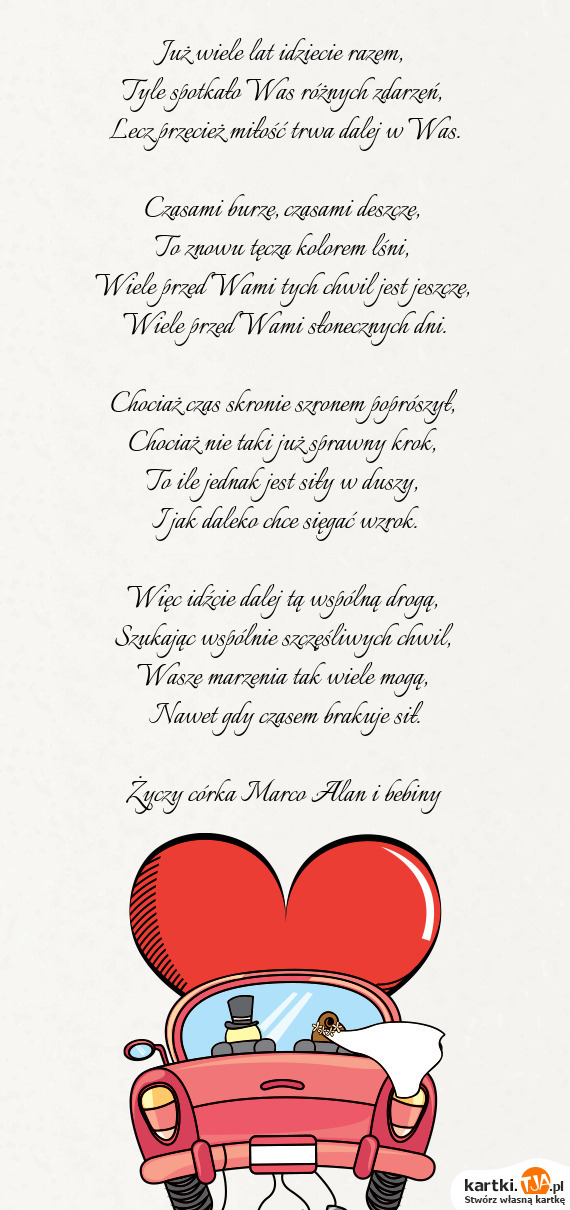 Już wiele lat idziecie razem,
Tyle spotkało Was różnych zdarzeń,
Lecz przecież miłość trwa dalej w Was.
Czasami burze, czasami deszcze,
To znowu tęcza kolorem lśni,
Wiele przed Wami tych chwil jest jeszcze,
Wiele przed Wami słonecznych dni.
Chociaż czas skronie szronem poprószył,
Chociaż nie taki już sprawny krok,
To ile jednak jest siły w duszy,
I jak daleko chce sięgać wzrok.
Więc idźcie dalej tą wspólną drogą,
Szukając wspólnie szczęśliwych chwil,
Wasze marzenia tak wiele mogą,
Nawet gdy czasem brakuje sił.
Życzy córka Marco Alan i bebiny
kartki.TJA.pl
Stwórz własną kartkę